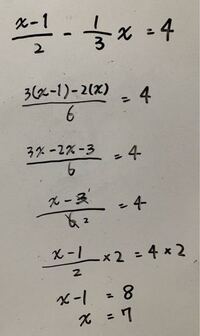 (x-1)/2 - (1/3)x = 4
(3(x-1)-2(x))/6 = 4
(3x-2x-3)/6 = 4
(x-3̶ 1)/(6̶ 2) = 4
(x-1)/2 × 2 = 4 × 2
x-1 = 8
x = 7